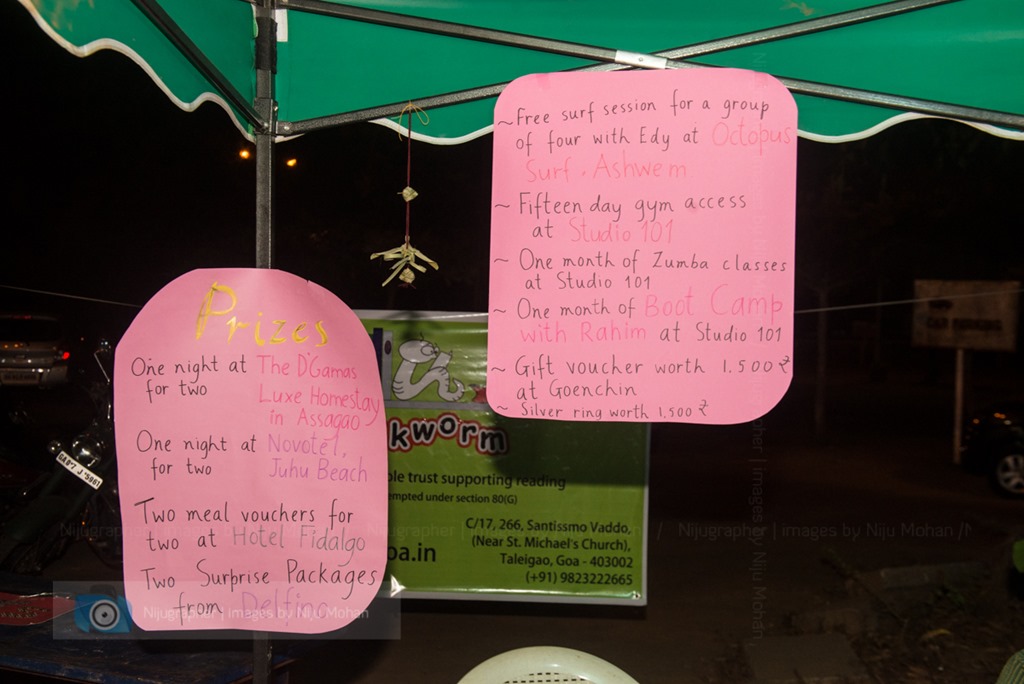 Prizes
One night at The D'Gamas
for two Luxe Homestay
in Assagao
One night at Novotel,
for two Juhu Beach
Two meal vouchers for
two at Hotel Fidalgo
Two Surprise Packages
from Delfino
~ Free surf session for a group
of four with Edy at Octopus
Surf. Ashwem
~ Fifteen day gym access
at Studio 101
~ One month of Zumba classes
at Studio 101
~ One month of Boot Camp
with Rahim at Studio 101
~ Gift voucher worth 1,500 ₹
at Goenchin
~ Silver ring worth 1,500 ₹
kworm
ble trust supporting reading
empted under section 80(G)
C/17, 266, Santissmo Vaddo,
(Near St. Michael's Church),
Taleigao, Goa - 403002
(+91) 9823222665
oa.in
CAR PARKING
Nijugrapher | images by Niju Mohan
Nijugrapher | images by Niju Mohan
Nijugrapher | images by Niju Mohan